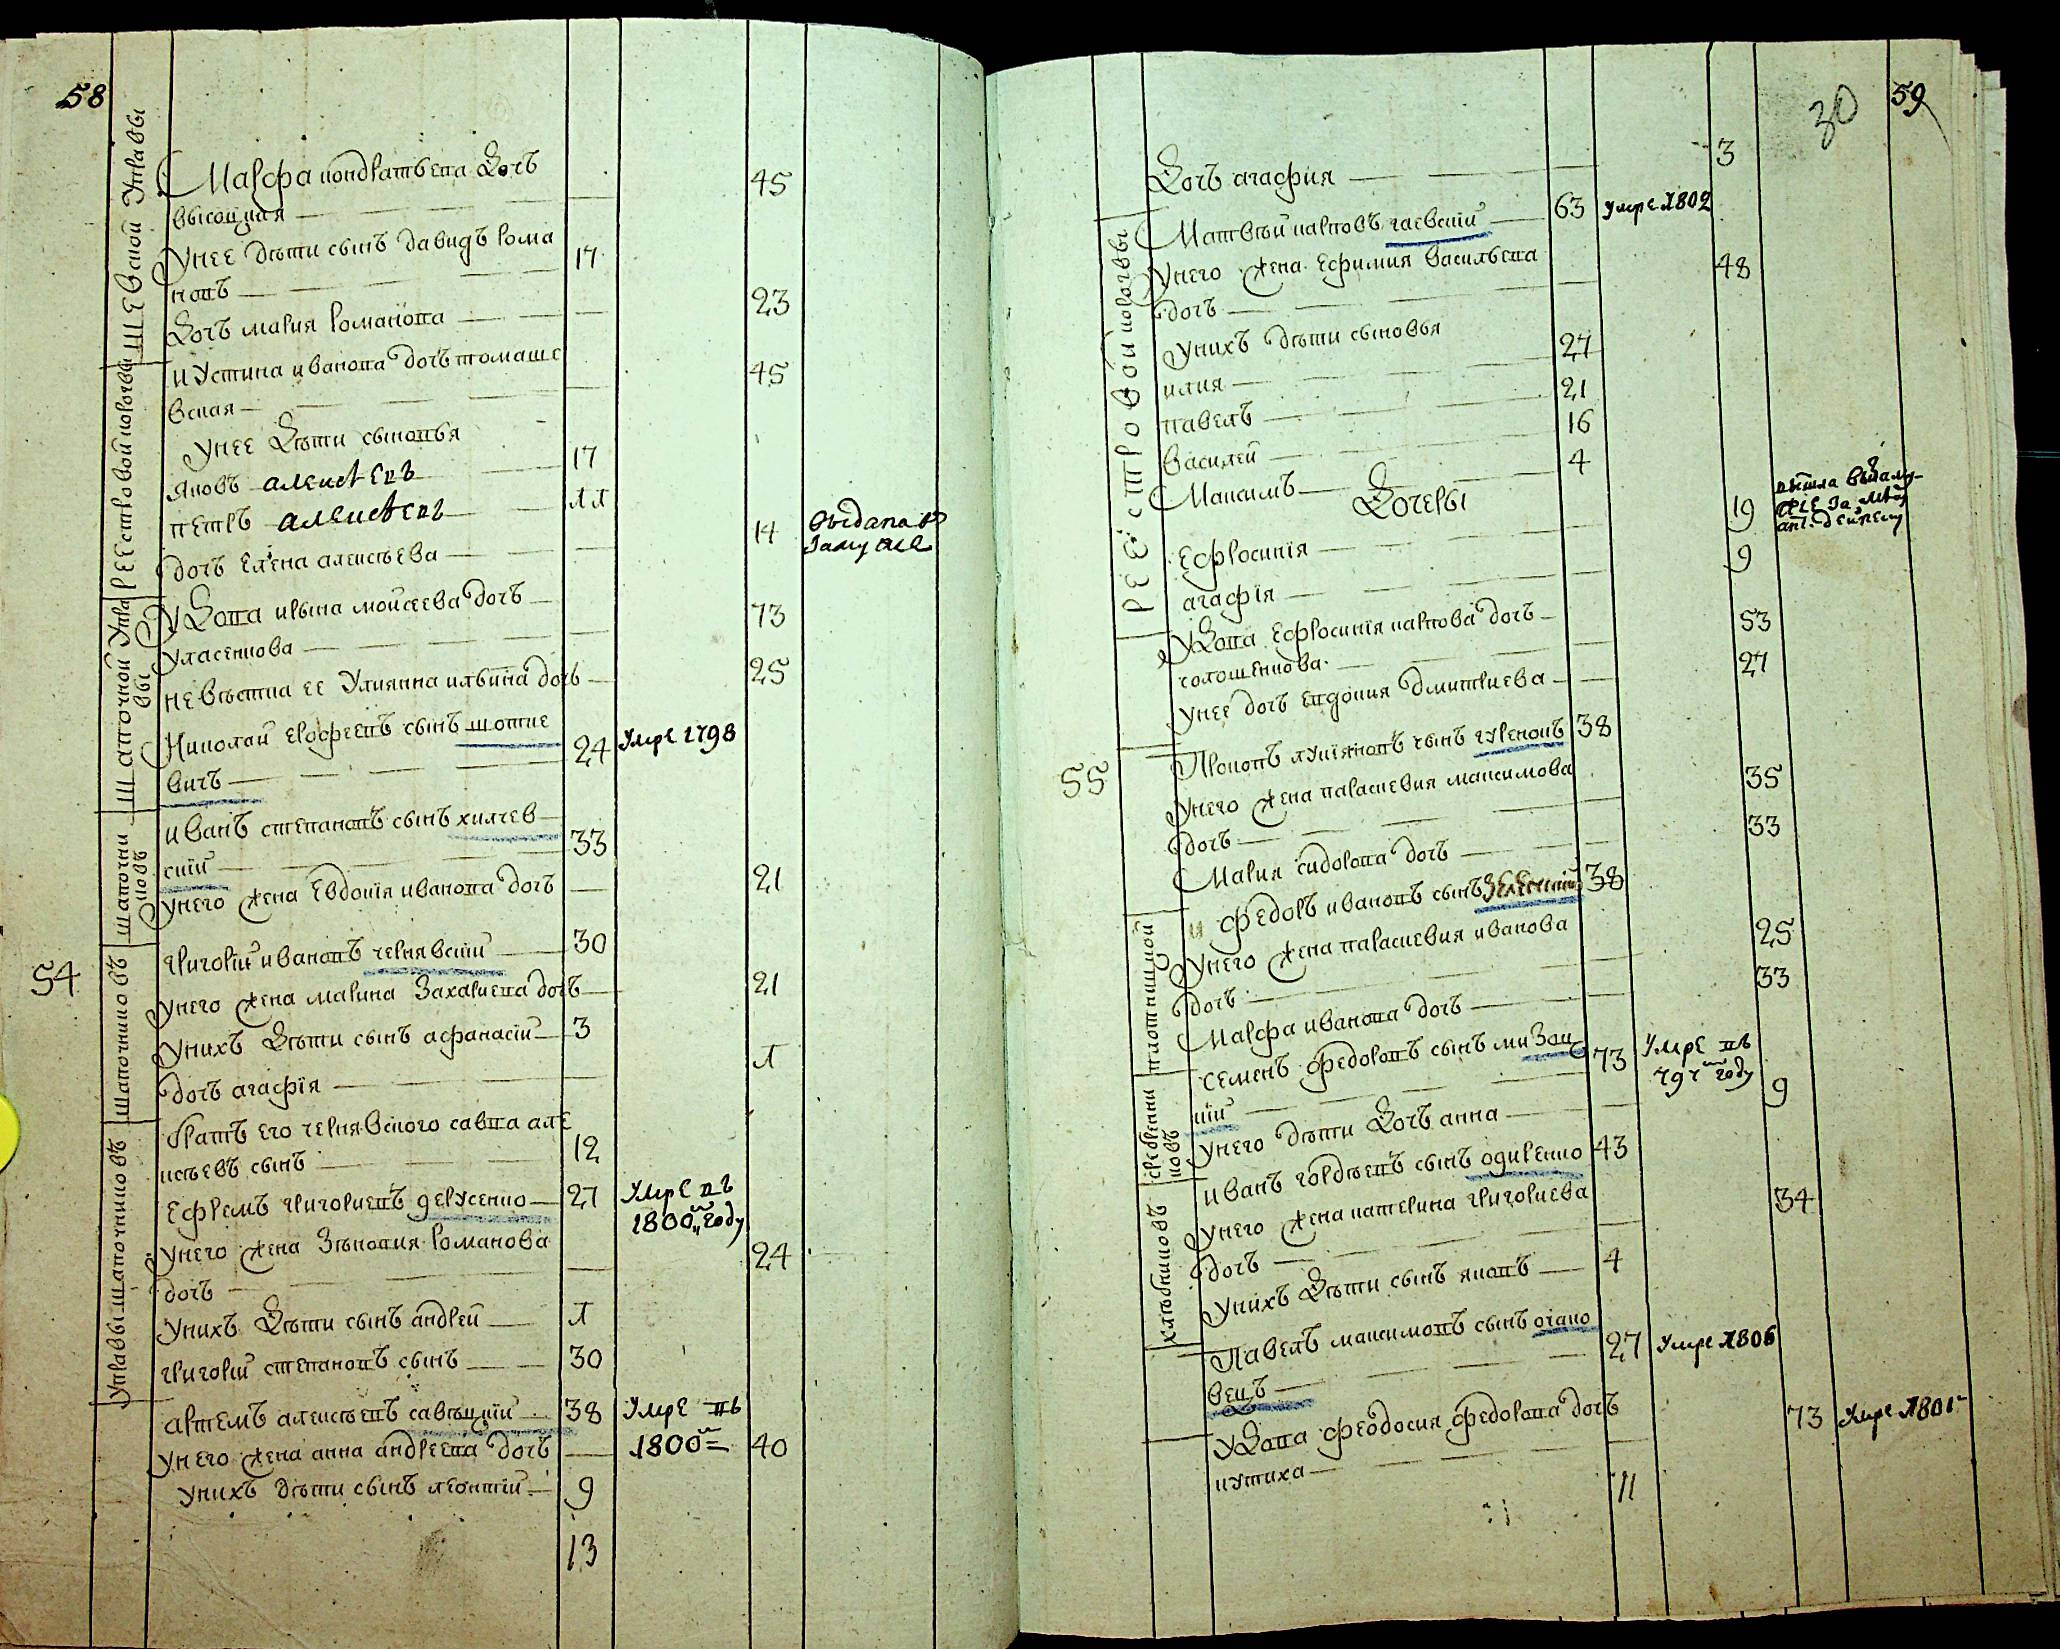 58
Шевской Управы
Марфа кондратьева Дочь
высоцкая
45
Унее дѣти сынъ давидъ рома
новъ
17
Дочь мария романова
23
Реестровой поправы
и Устина иванова дочь томаше
вская
45
унее Дѣти сыновья
яковъ алексѣевъ
17
петръ алексѣевъ
11
дочь Елена алексѣева
14
выдана в
замужже
Шапочной Упра
вы
Удова ирына мойсеева дочь
уласенкова
73
невѣстка ее Улиянна ильина дочь
25
Николай ерофеевъ сынъ шопке
вичъ
24
Умре 1798
шапочни
ковъ
иванъ степановъ сынъ хилчев
ский
33
унего жена Евдокія иванова дочь
21
54
шапочниковъ
григорій ивановъ чернявский
30
унего жена марина Захариева дочь
21
унихъ Дѣти сынъ афанасій
3
дочь агафія
1
братъ его чернявского савва але
ксѣевъ сынъ
12
Управы шапочниковъ
ефремъ григориевъ дерусенко
27
Умре въ
1800м году
унего жена Зѣновия Романова
дочь
24
унихъ Дѣти сынъ андрей
1
григорій степановъ сынъ
30
артемъ алексѣевъ савѣцкій
38
Умре въ
1800м
унего жена анна андреева дочь
40
унихъ дѣти сынъ леонтій
9
13
30
59
Дочь агафия
3
Реестровой поправы
Матвѣй карповъ гаевский
63
умре 1802
унего жена ефимия васильева
дочь
48
унихъ дѣти сыновья
илия
27
павелъ
21
василей
16
Максимъ
4
Дочеры
ефросинія
19
агафія
9
Удова Ефросинія карпова дочь
голошенкова
53
унее дочь евдокия дмитриева
27
55
Прокопъ лукіяновъ сынъ гуренокъ
38
унего жена параскевия максимова
дочь
35
Мария сидорова дочь
33
плотницкой
и федоръ ивановъ сынъ
38
унего жена параскевия иванова
дочь
25
Марфа иванова дочь
33
сребренни
ковъ
семенъ федоровъ сынъ ми Зац
кій
73
Умре въ
797м году
унего дѣти Дочь анна
9
хлѣбниковъ
иванъ гордѣевъ сынъ одиренко
43
унего жена катерина григориева
дочь
34
унихъ Дѣти сынъ яковъ
4
Павелъ максимовъ сынъ огано
вецъ
27
умре 1806
Удова феодосия федорова дочь
кутиха
73
Умре 1801
11